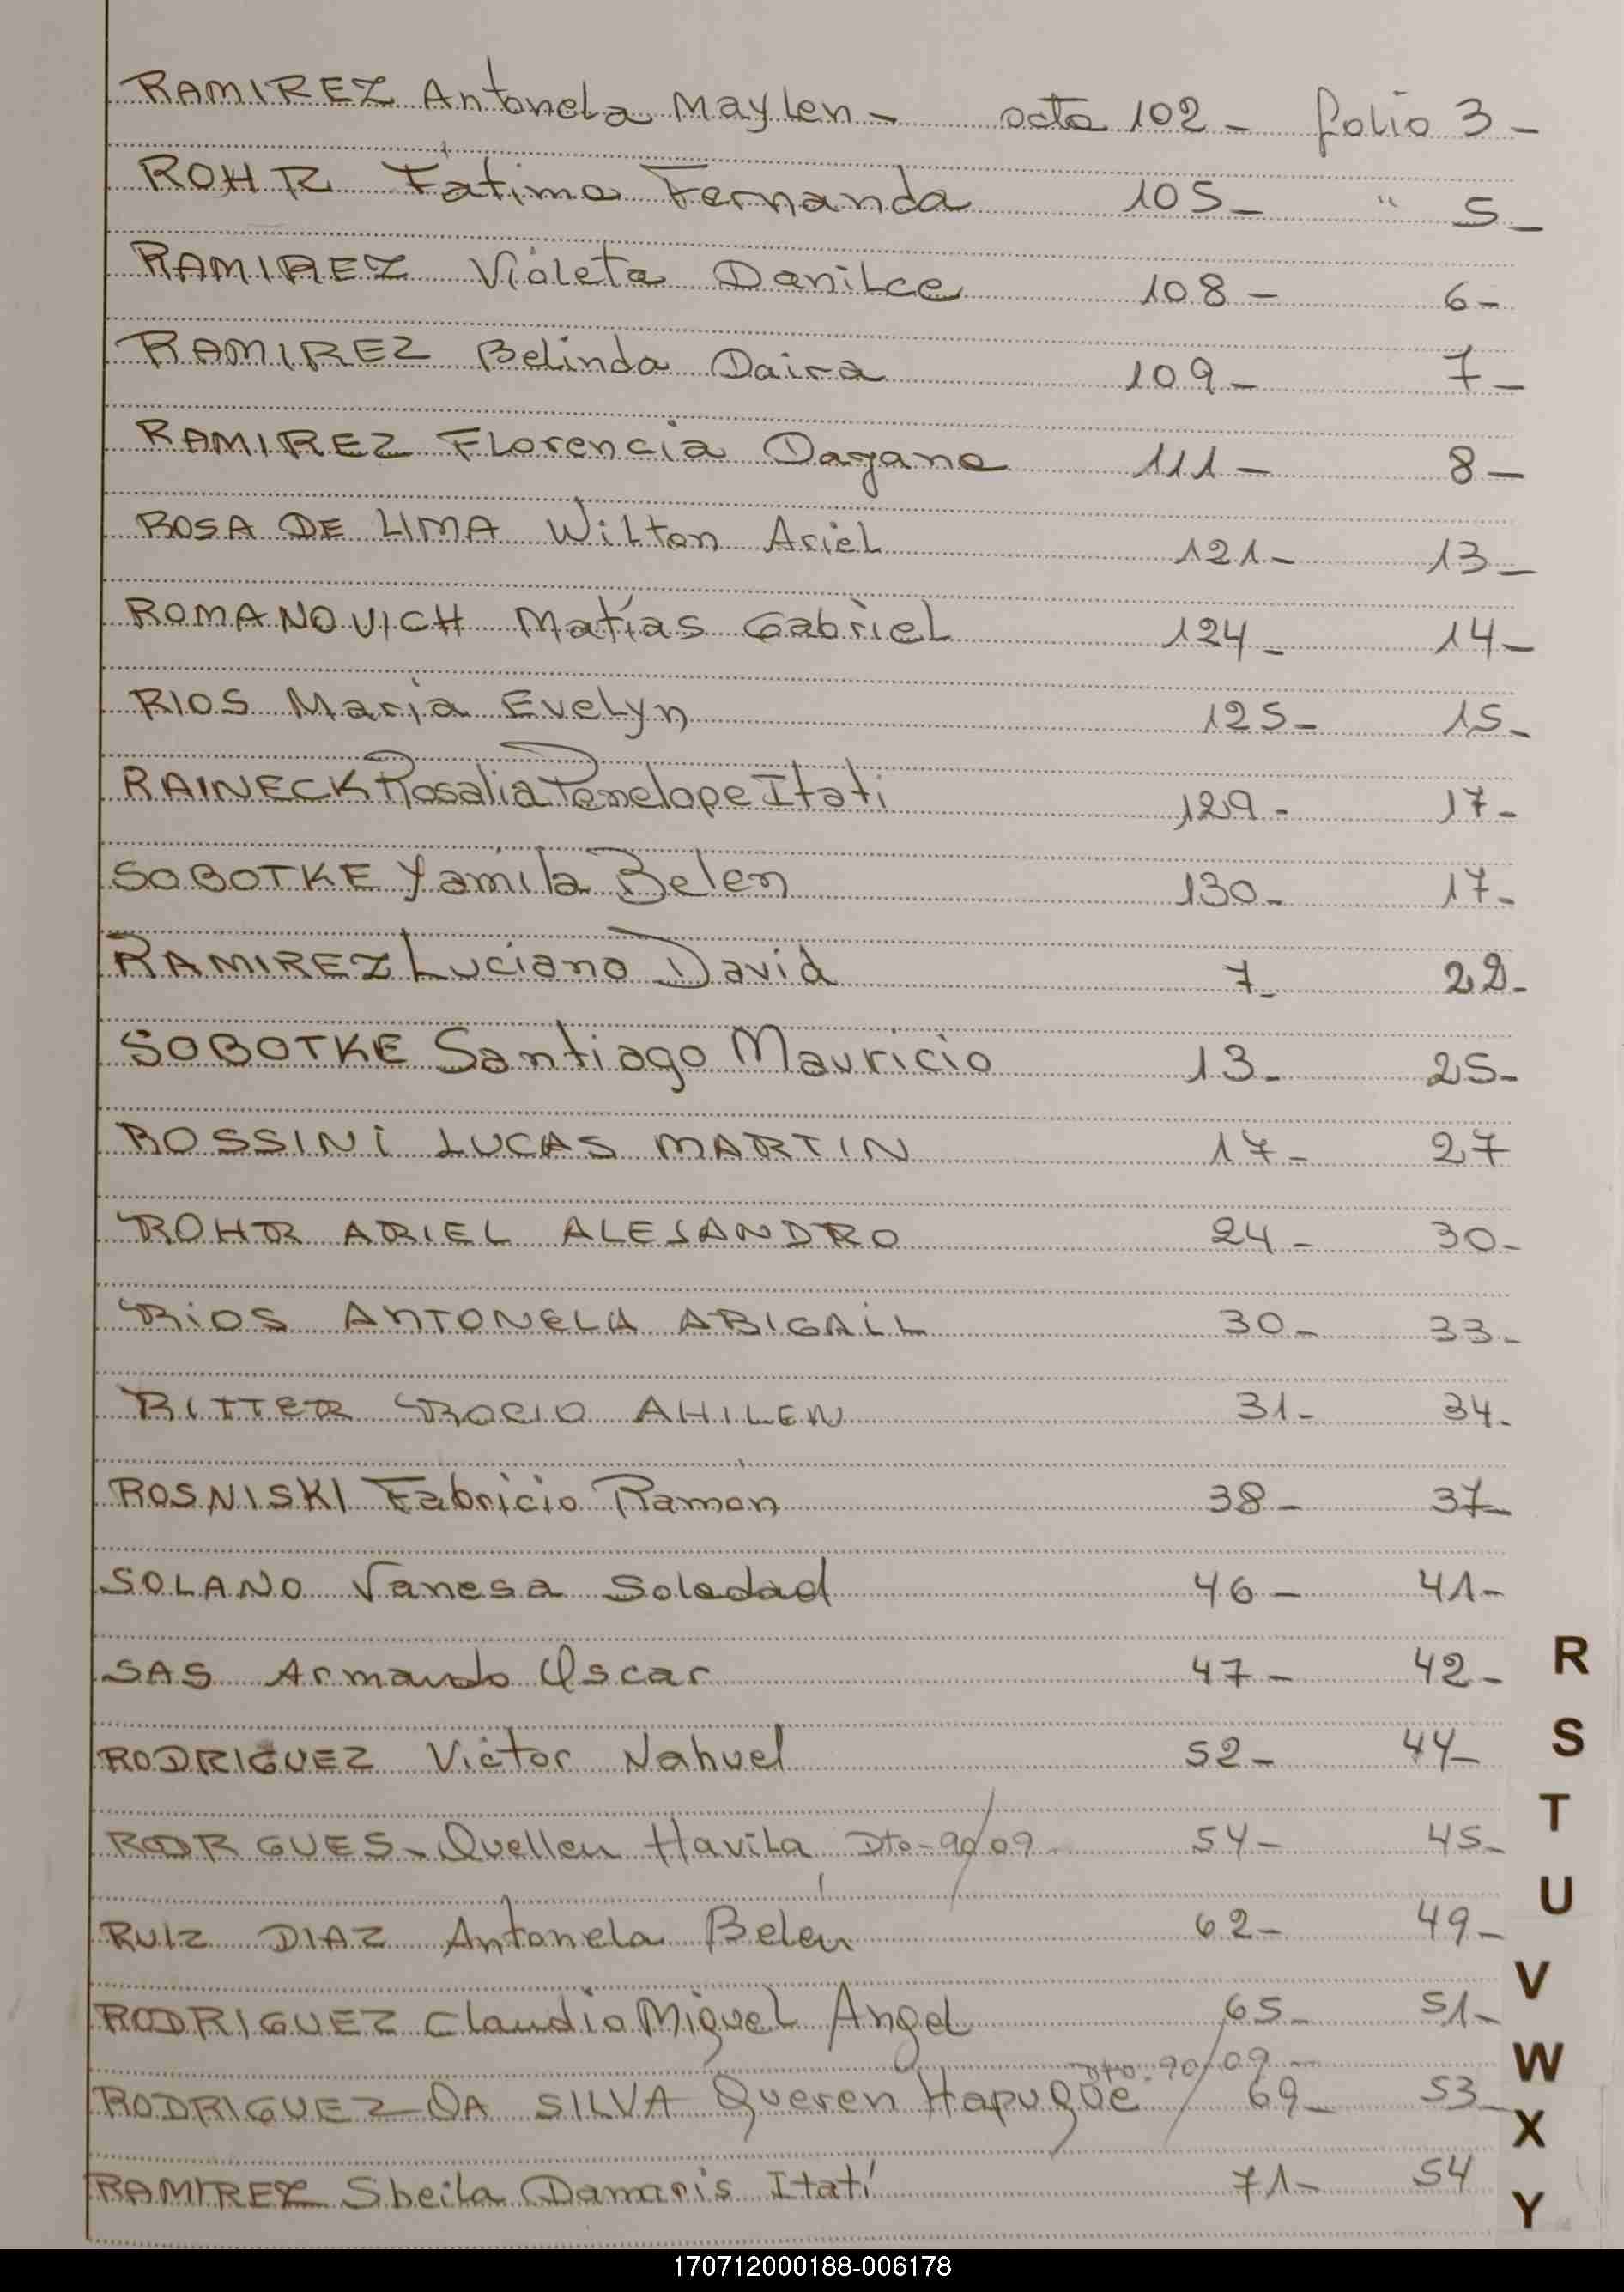 RAMIREZ Antonela Maylen - acta 102 - folio 3 -
ROHR Fatima Fernanda 105 - " 5 -
RAMIREZ Violeta Danilce 108 - 6 -
RAMIREZ Belinda Daira 109 - 7 -
RAMIREZ Florencia Dayana 111 - 8 -
ROSA DE LIMA Wilton Ariel 121 - 13 -
ROMANOVICH Matías Gabriel 124 - 14 -
RIOS Maria Evelyn 125 - 15 -
RAINECK Rosalia Penelope Itati 129 - 17 -
SOBOTKE Yamila Belen 130 - 17 -
RAMIREZ Luciano David 7 - 22 -
SOBOTKE Santiago Mauricio 13 - 25 -
ROSSINI LUCAS MARTIN 17 - 27
ROHR ARIEL ALEJANDRO 24 - 30 -
RIOS ANTONELA ABIGAIL 30 - 33 -
RITTER ROCIO AHILEN 31 - 34 -
ROSNISKI Fabricio Ramón 38 - 37 -
SOLANO Vanesa Soledad 46 - 41 -
SAS Armando Oscar 47 - 42 -
RODRIGUEZ Victor Nahuel 52 - 44 -
RODR GUES - Quellen Havila Dto - 90/09 - 54 - 45 -
RUIZ DIAZ Antonela Belén 62 - 49 -
RODRIGUEZ Claudio Miguel Angel 65 - 51 -
Dto. 90/09 -
RODRIGUEZ - DA SILVA Queren Hapuque 69 - 53 -
RAMIREZ Sheila Damaris Itatí 71 - 54
R
S
T
U
V
W
X
Y
170712000188-006178